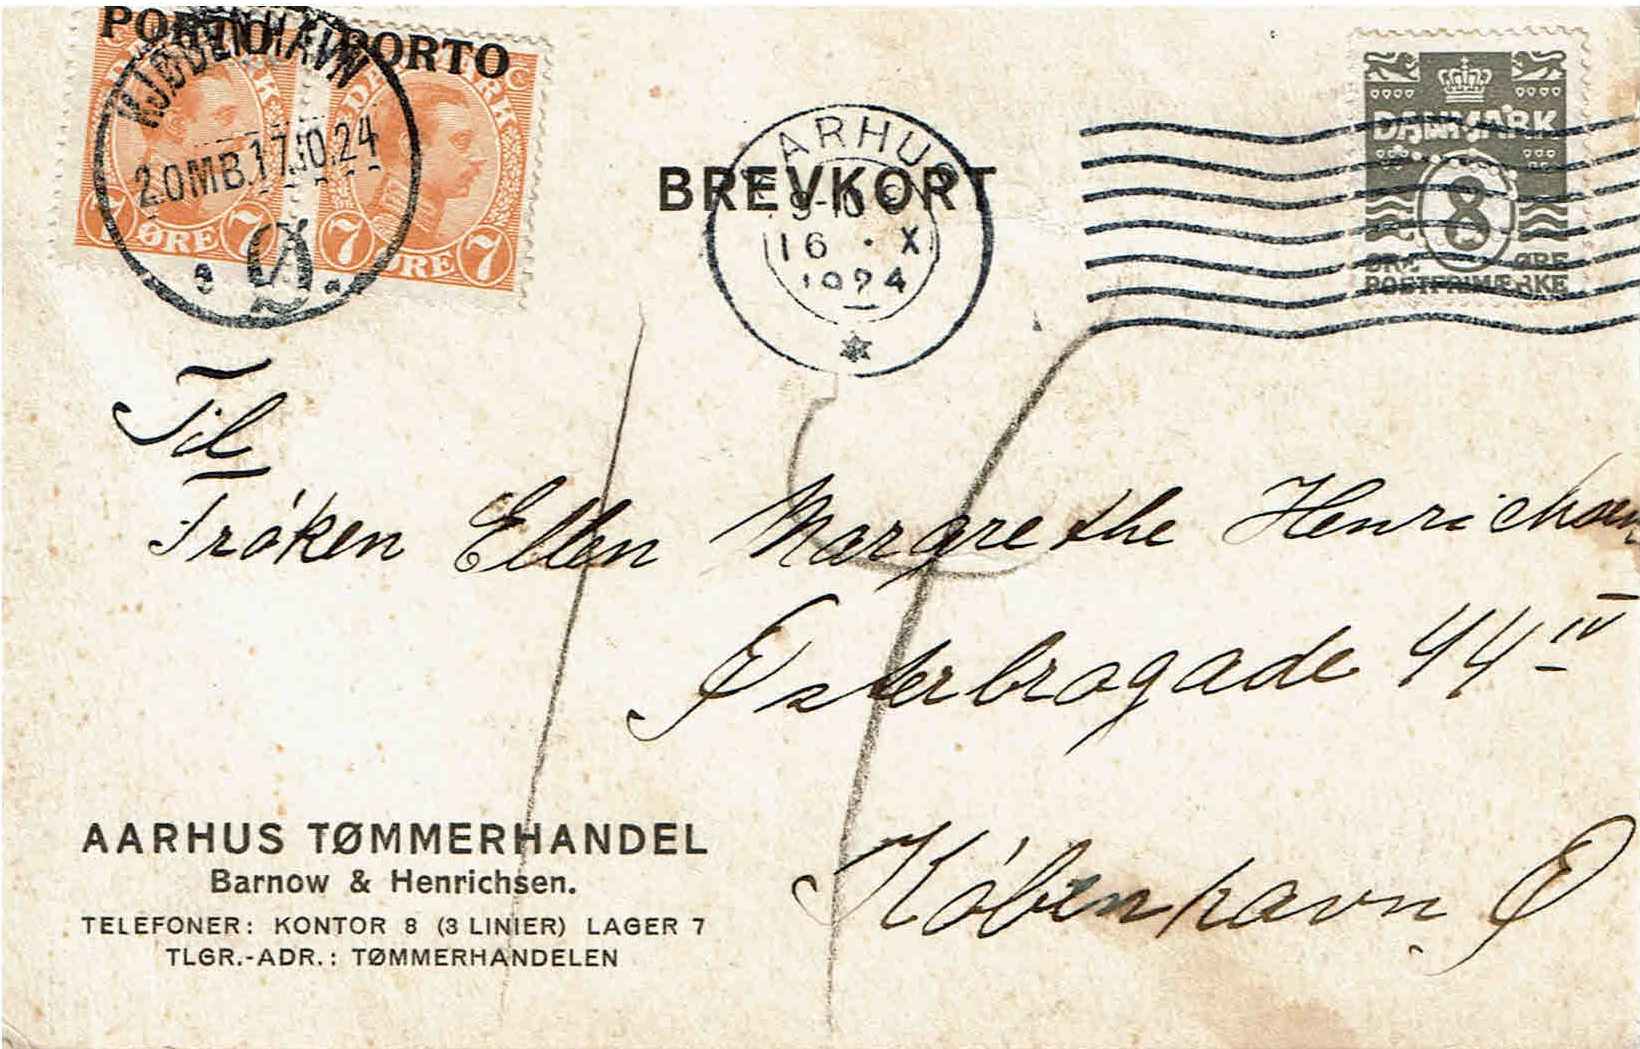 PORTO PORTO
DANMARK
7 ØRE 7
7 ØRE 7
KJØBENHAVN
2.OMB.17.10.24
Ø.
AARHUS
9-10
16 · X
1924
BREVKORT
DANMARK
8
ØRE ØRE
POSTFRIMÆRKE
14
Til
Frøken Ellen Margrethe Henrichsen
Østerbrogade 44 IV
København Ø
AARHUS TØMMERHANDEL
Barnow & Henrichsen.
TELEFONER: KONTOR 8 (3 LINIER) LAGER 7
TLGR.-ADR.: TØMMERHANDELEN